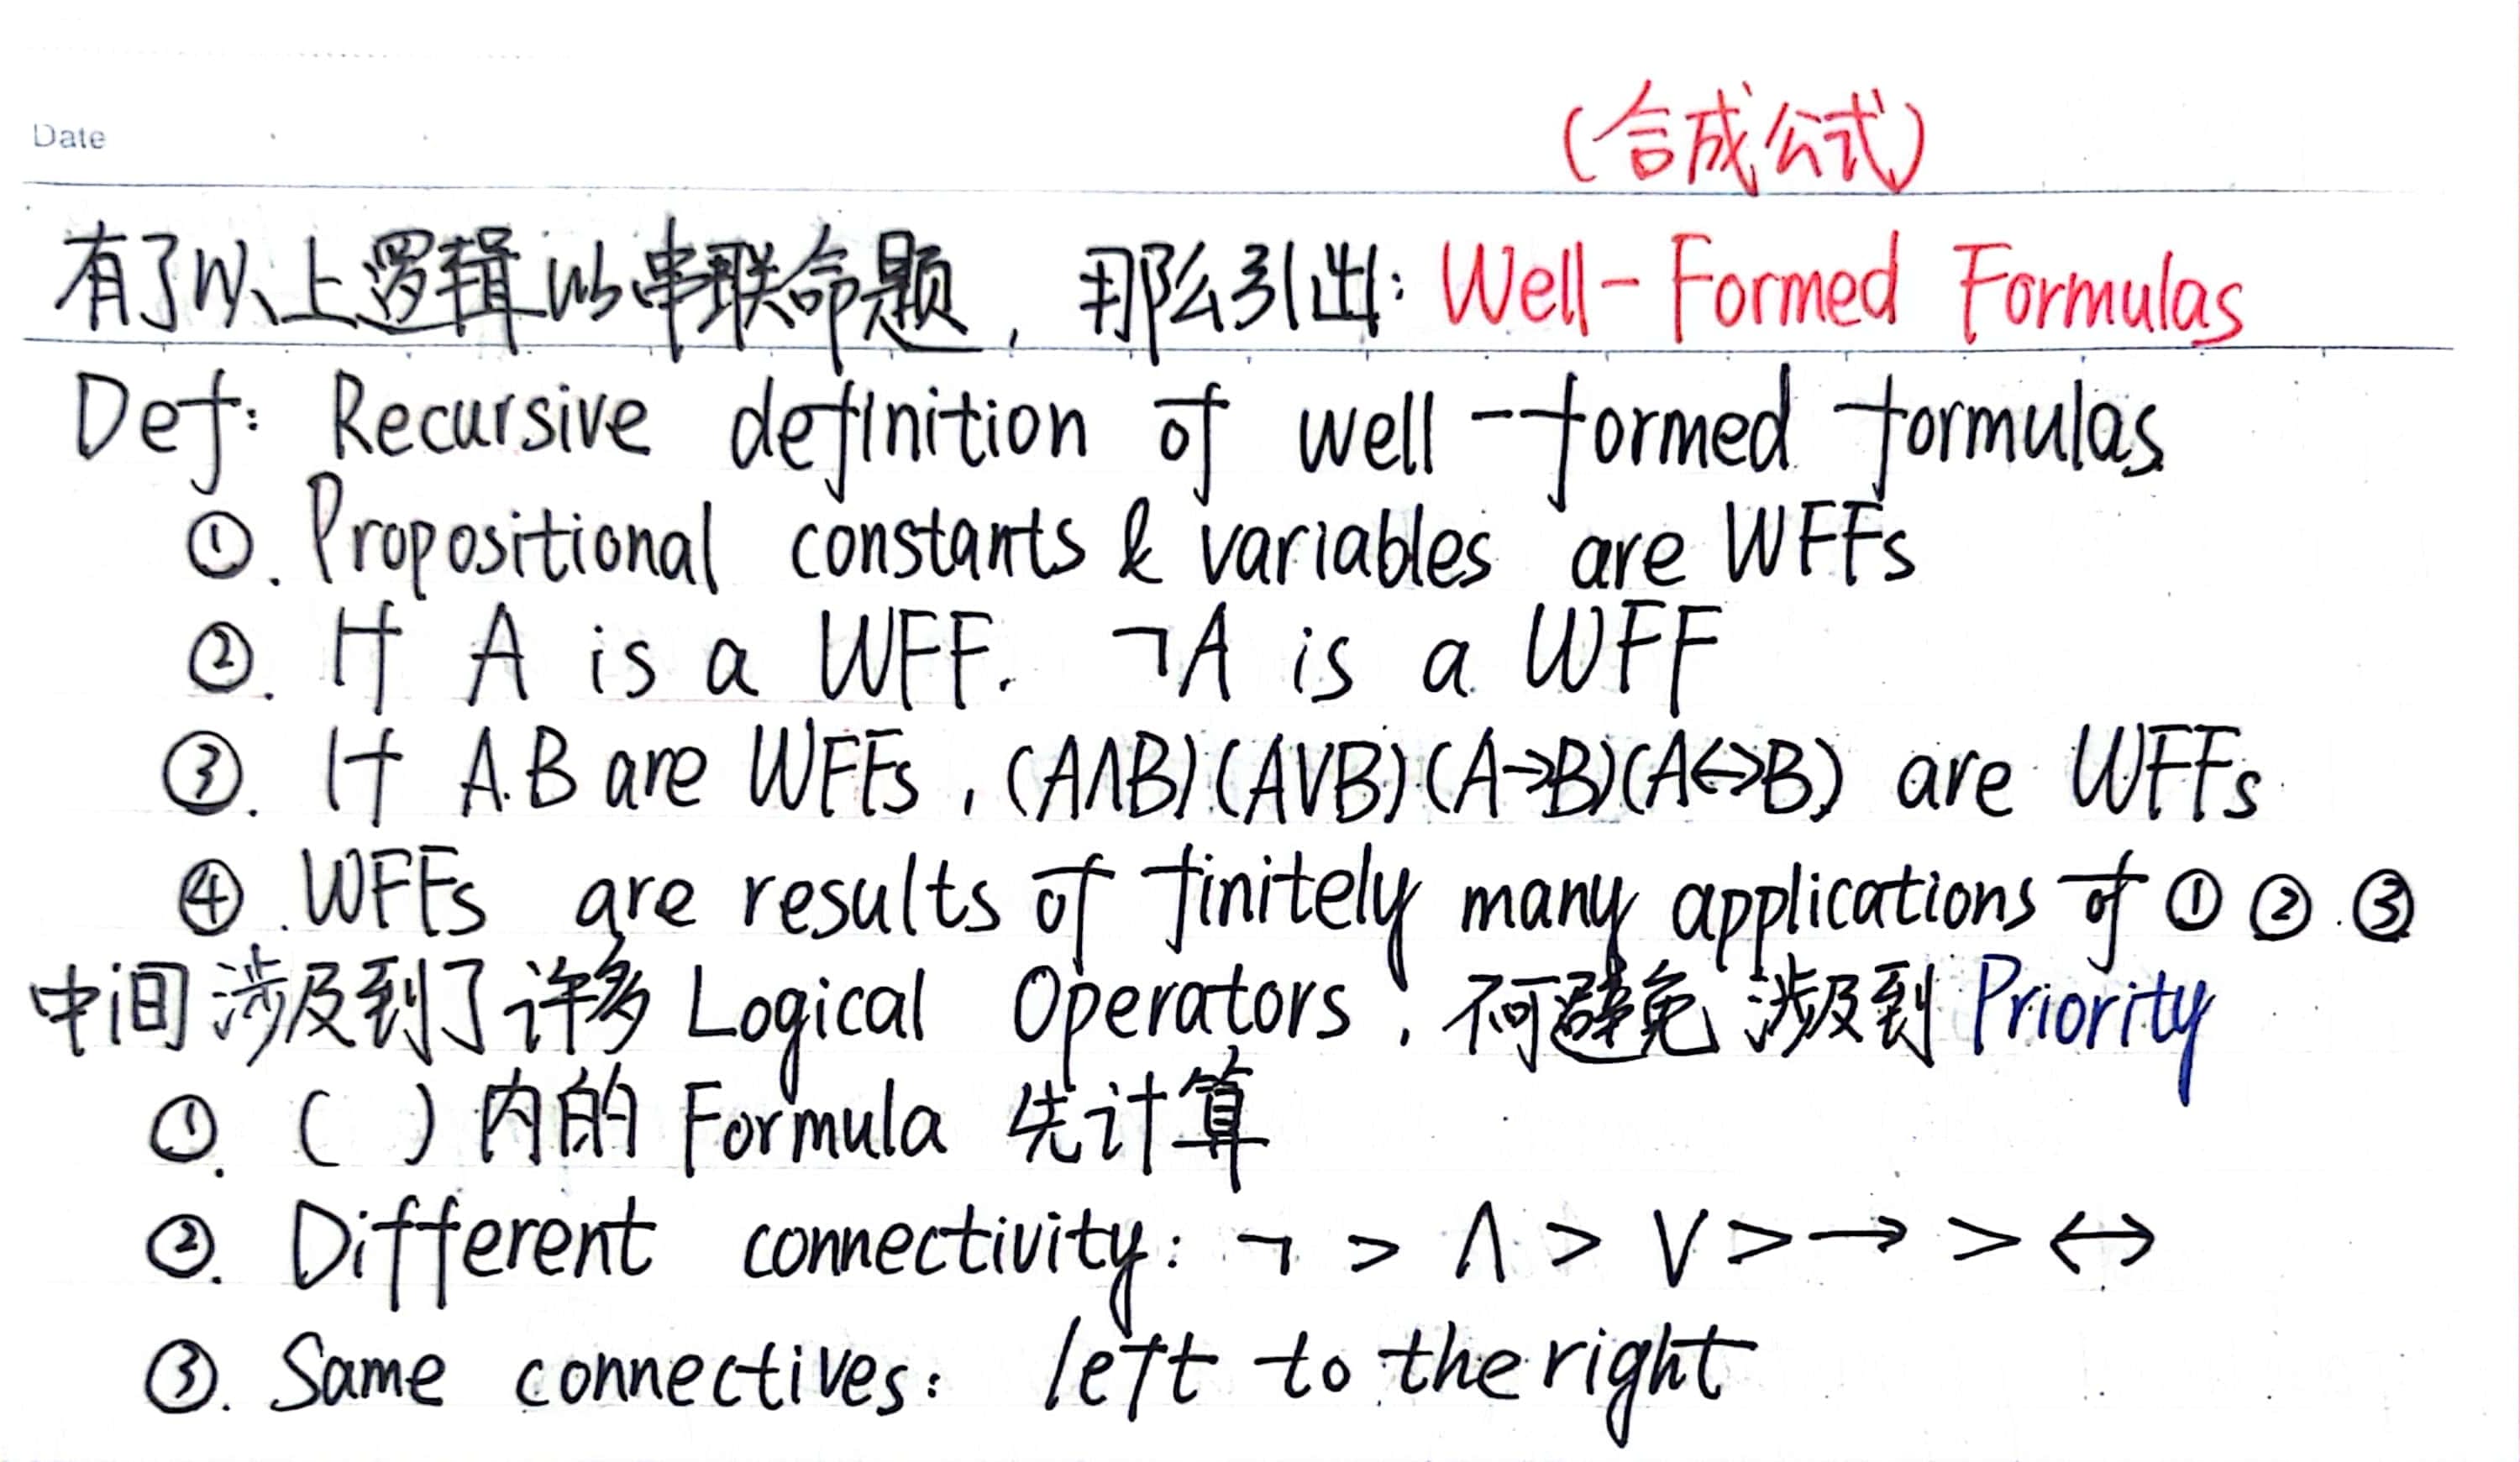 Date
(合成公式)
有了以上逻辑以串联命题，那么引出: Well-Formed Formulas
Def: Recursive definition of well-formed formulas
①. Propositional constants & variables are WFFs
②. If A is a WFF. ¬A is a WFF
③. If A.B are WFFs, (A∧B)(A∨B)(A→B)(A↔B) are WFFs
④. WFFs are results of finitely many applications of ① ② ③
中间涉及到了许多 Logical Operators, 不可避免涉及到 Priority
①. ( ) 内的 Formula 先计算
②. Different connectivity: ¬ > ∧ > ∨ > → > ↔
③. Same connectives: left to the right